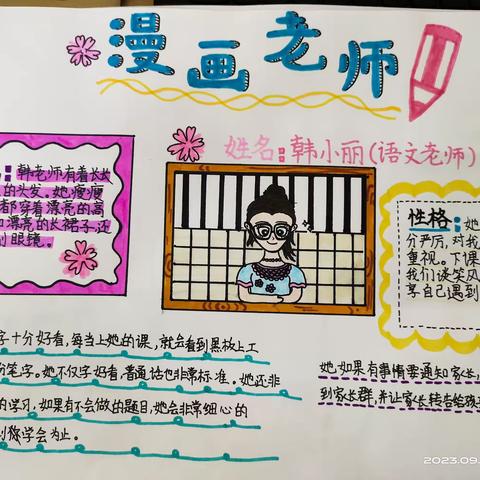 漫画老师
姓名:韩小丽(语文老师)
:韩老师有着长长
的头发。她瘦瘦
都穿着漂亮的高
漂亮的长裙子,还
眼镜。
性格:她
分严厉,对我
重视。下课
我们谈笑风
享自己遇到
字十分好看,每当上她的课,就会看到黑板上工
粉笔字。她不仅字好看,普通话也非常标准。她还非
的学习,如果有不会做的题目,她会非常细心的
到你学会为止。
她,如果有事情要通知家长,
到家长群,并让家长转告给孩
2023.09.